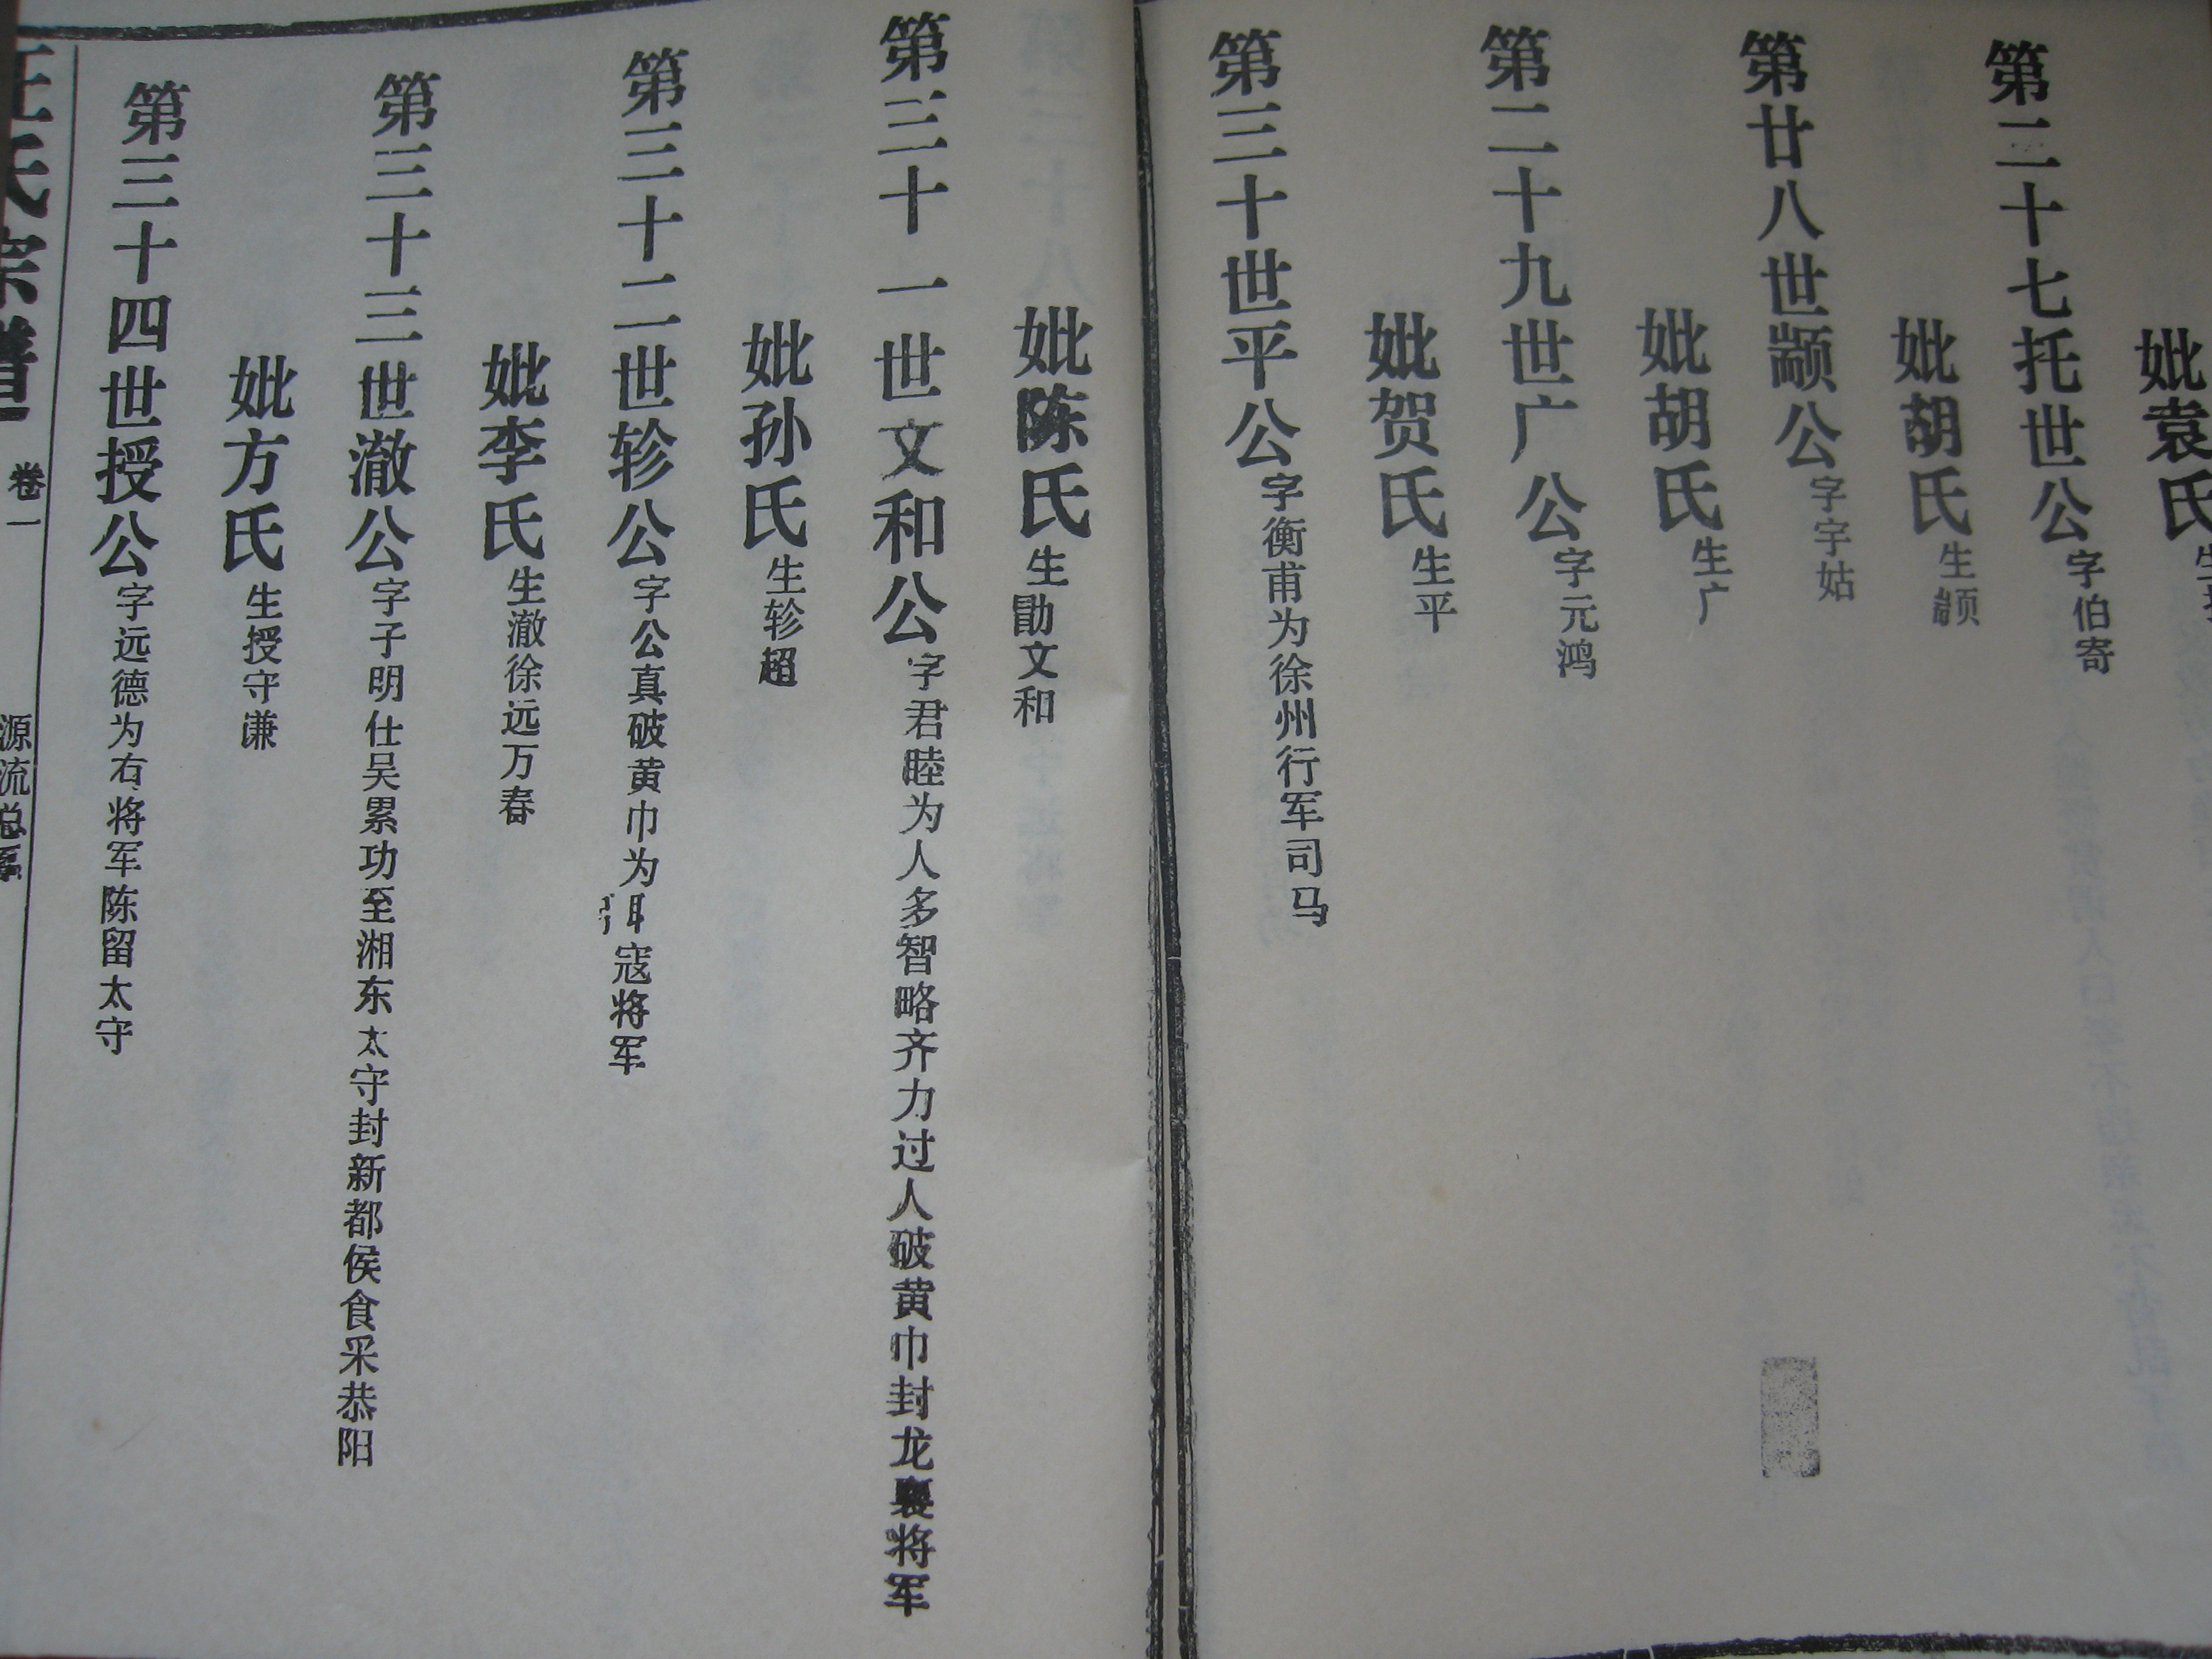 妣袁氏生
第二十七托世公字伯寄
妣胡氏生颛
第廿八世颛公字宇姑
妣胡氏生广
第二十九世广公字元鸿
妣贺氏生平
第三十世平公字衡甫为徐州行军司马
妣陈氏生勖文和
第三十一世文和公字君睦为人多智略齐力过人破黄巾封龙襄将军
妣孙氏生轸超
第三十二世轸公字公真破黄巾为寇将军
妣李氏生澈徐远万春
第三十三世澈公字子明仕吴累功至湘东太守封新都侯食采恭阳
妣方氏生授守谦
第三十四世授公字远德为右将军陈留太守
汪氏宗谱 卷一 源流总系